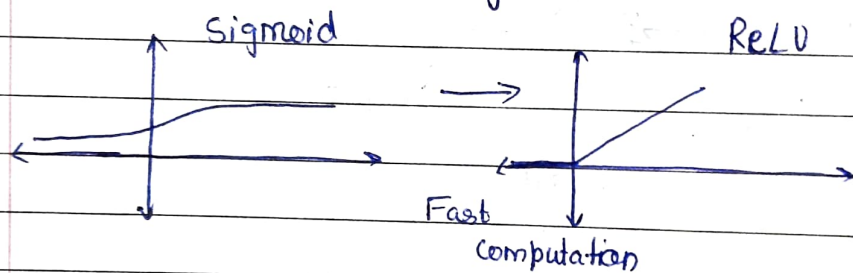 Sigmoid
ReLU
Fast
Computation